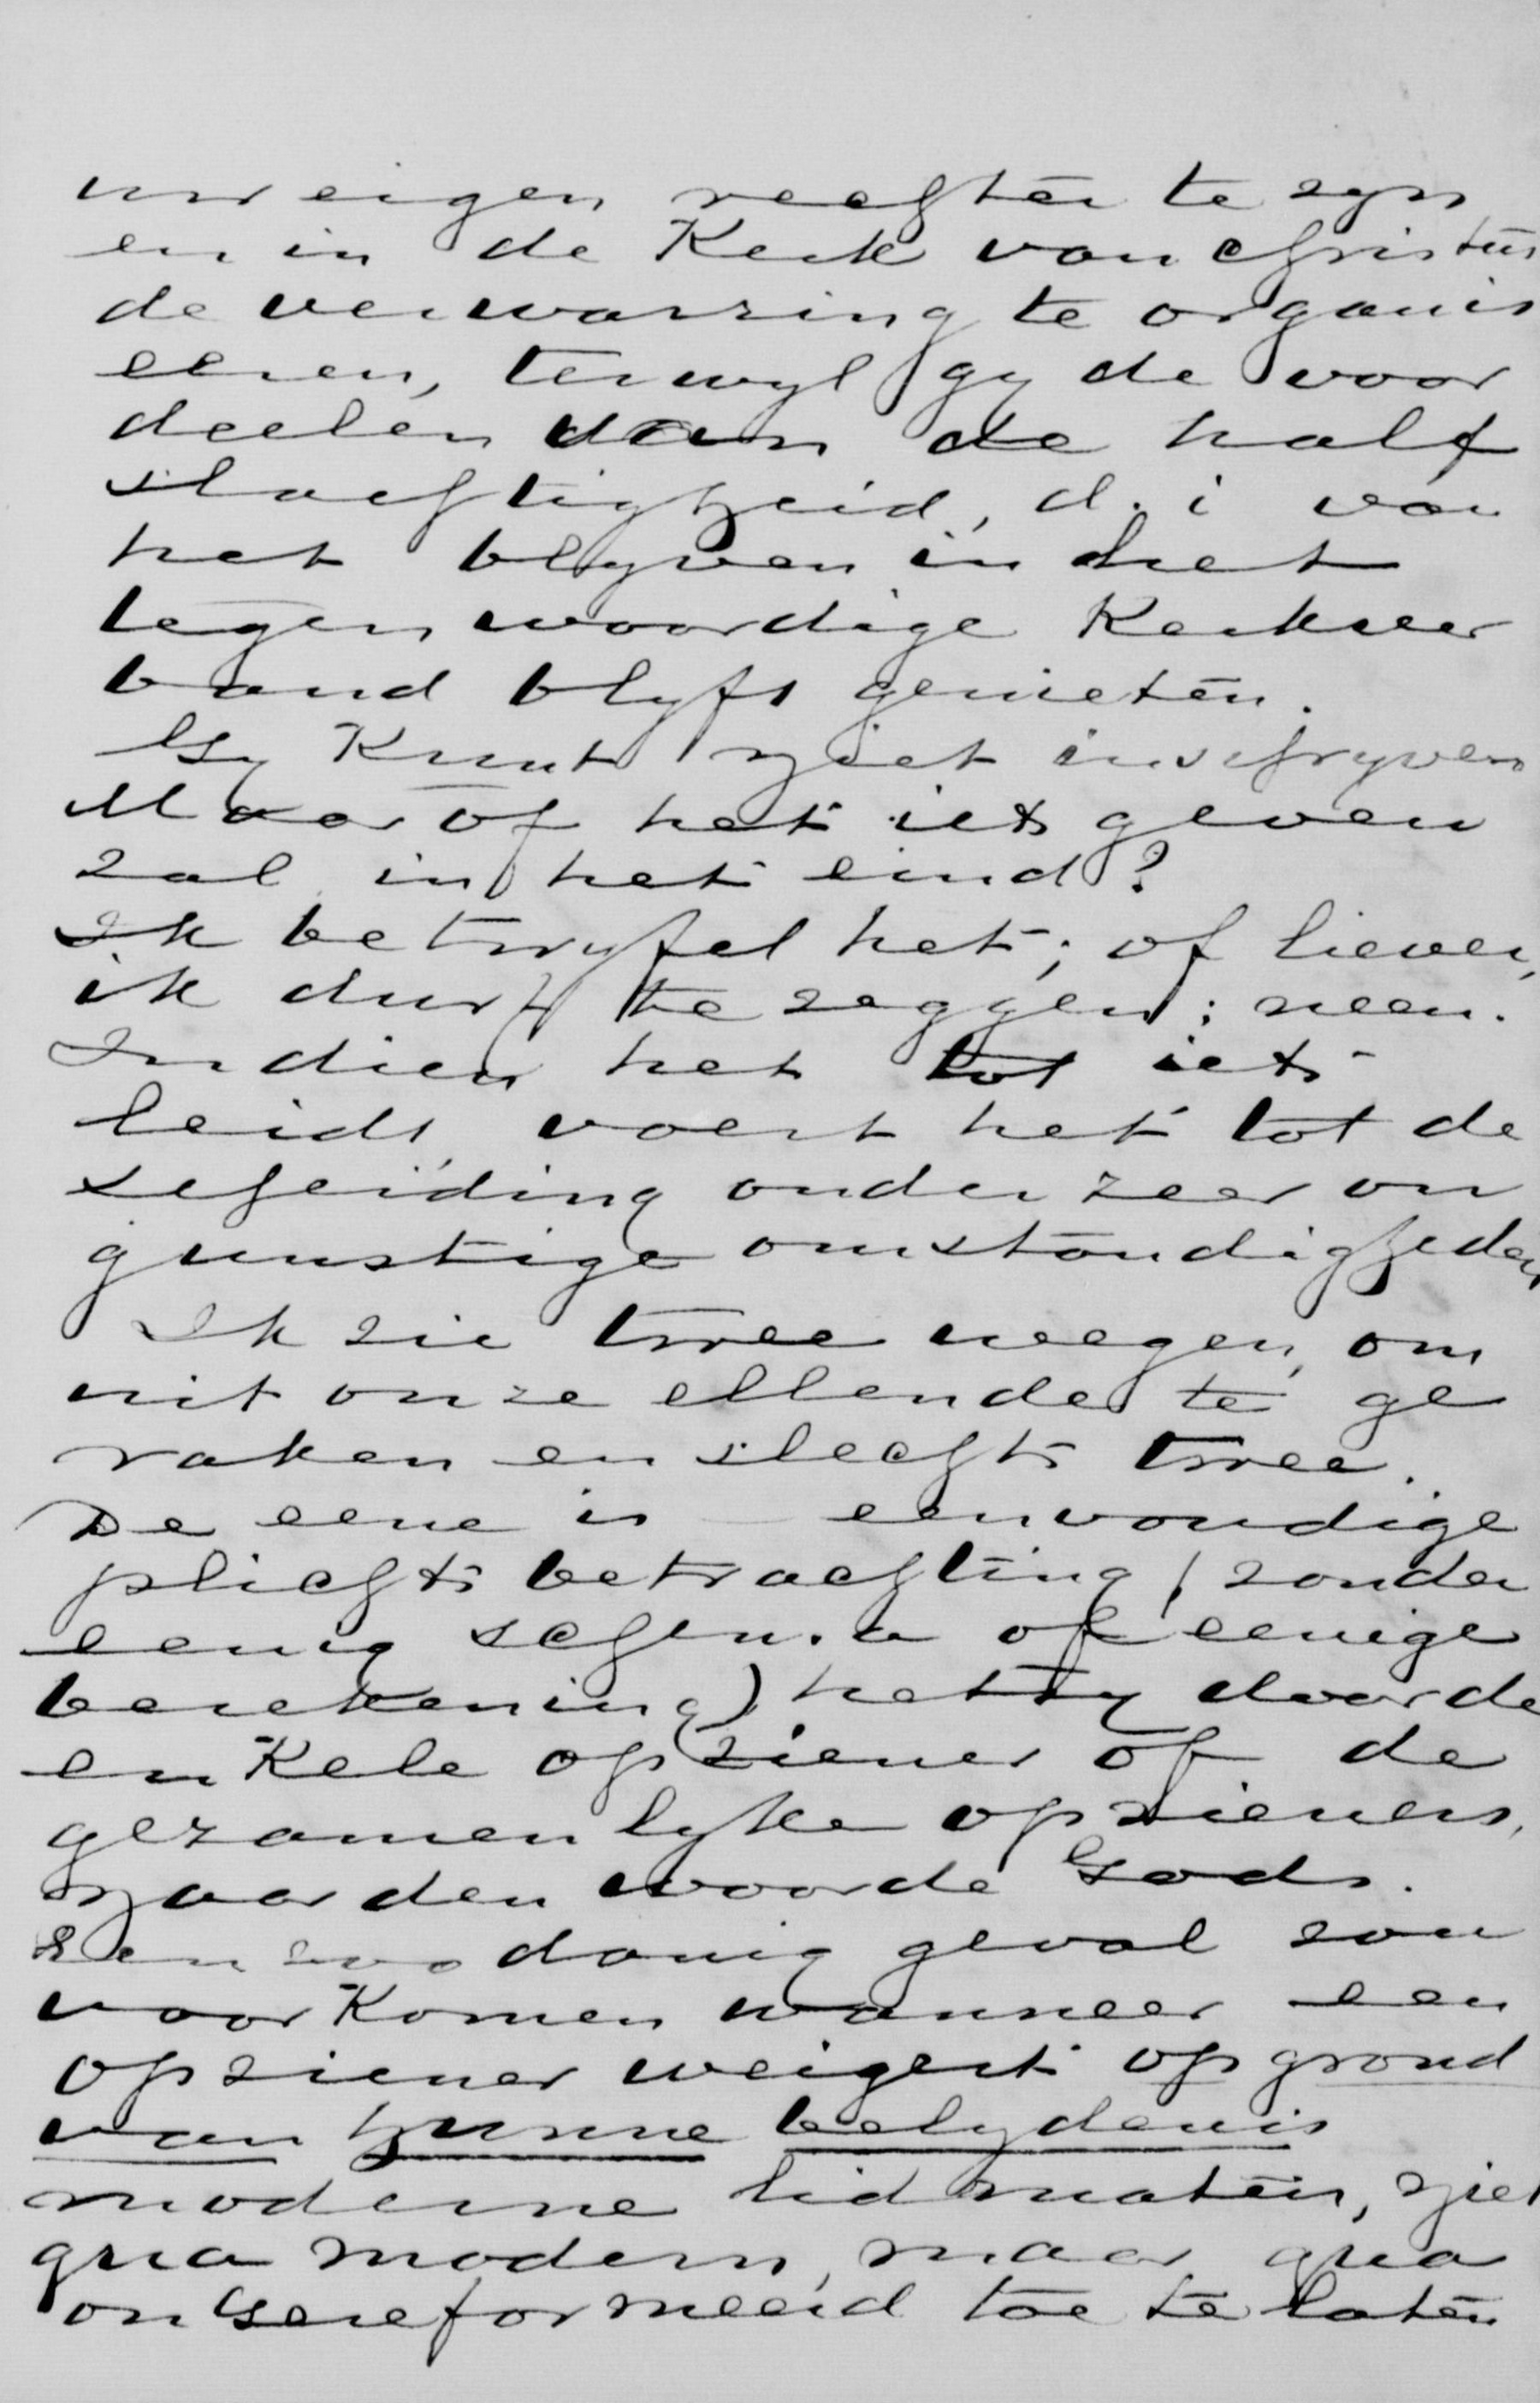 uw eigen rechter te zyn
en in de Kerk van Christus
de verwarring te organis
eeren, terwyl gy de voor
deelen van de half
slachtigheid, d. i van
het blyven in het
tegenwoordige Kerkver
band blyft genieten.
Gy Kunt niet inschryven
Maar of het iets geven
zal in het eind?
Ik betwyfel het; of liever,
ik durf te zeggen: neen.
Indien het tot iets
leidt, voert het tot de
scheiding onder zeer on
gunstige omstandigheden
Ik zie twee wegen, om
uit onze ellende te ge
raken en slechts twee.
De eene is eenvoudige
plichtsbetrachting (zonder
eenig schema of eenige
berekening) hetzy door de
enkele opziener of de
gezamenlyke opzieners,
naar den woorde Gods.
Een zoodanig geval zou
voorKomen wanneer een
opziener weigert op grond
van hunne belydenis
moderne lidmaten, niet
qua modern, maar qua
onGereformeerd toe te laten